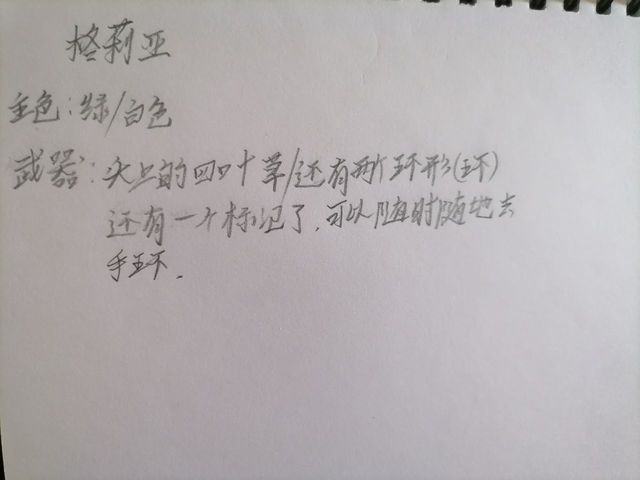 格莉亚
主色:绿/白色
武器:头上的四叶草/还有两个环形(环)
还有一个标记了,可以随时随地去
手环.